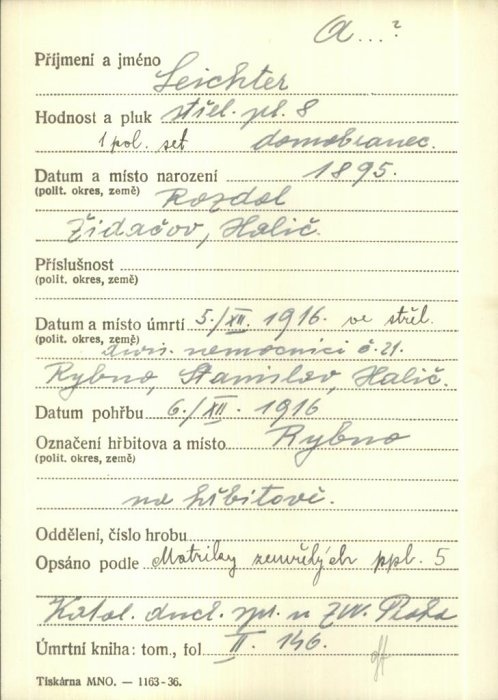 A...?
Příjmení a jméno
Leichter
Hodnost a pluk střel. pl. 8
1 pol. set domobranec.
Datum a místo narození 1895.
(polit. okres, země) Rozdol
Židačov, Halič.
Příslušnost
(polit. okres, země)
Datum a místo úmrtí 5./XII. 1916. ve střel.
(polit. okres, země) divis. nemocnici č. 21.
Rybno, Stanislav, Halič.
Datum pohřbu 6./XII. 1916
Označení hřbitova a místo Rybno
(polit. okres, země)
na hřbitově.
Oddělení, číslo hrobu
Opsáno podle Matriky zemřelých ppl. 5
Katol. duch. spr. u ZVV. Praha
Úmrtní kniha: tom., fol II. 146.
Tiskárna MNO. — 1163-36.